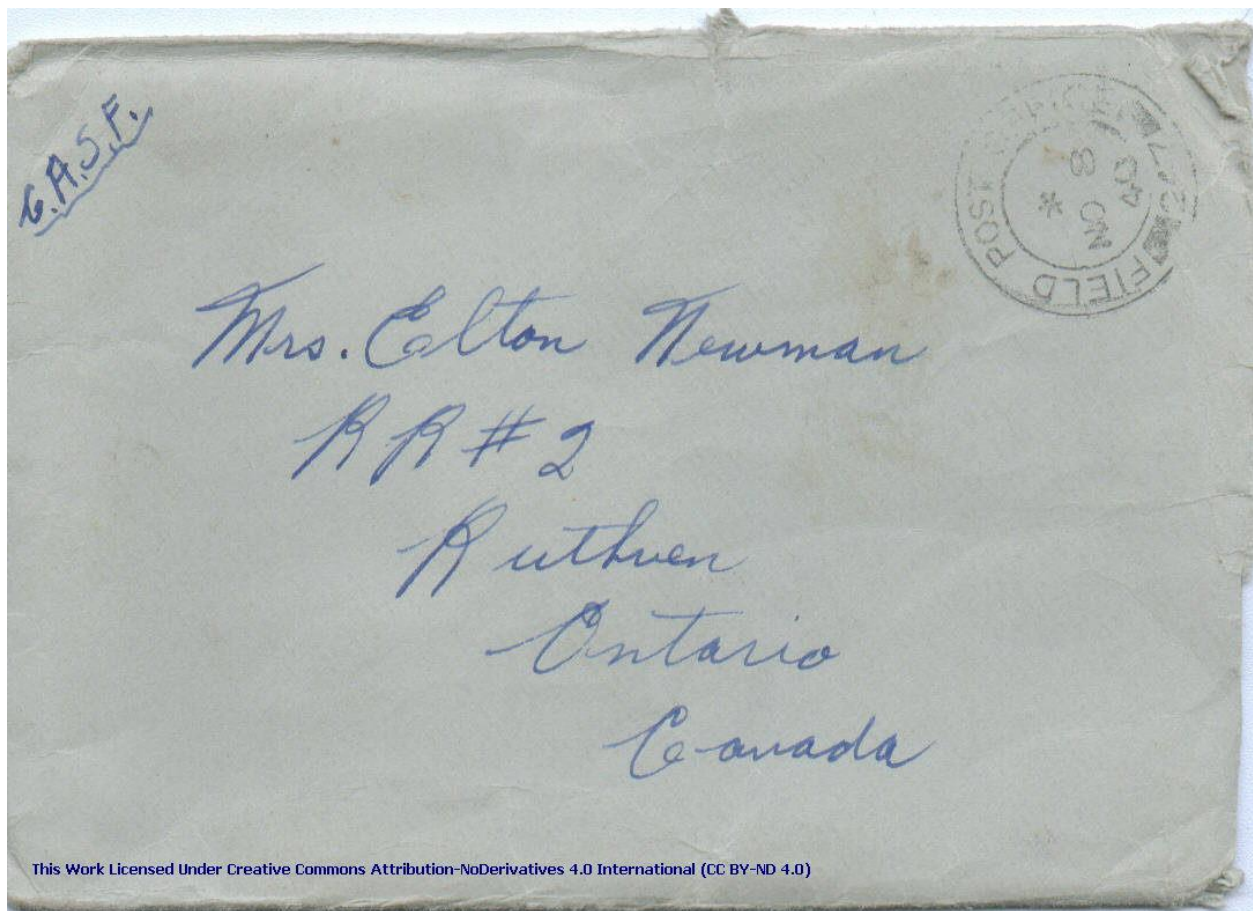 C.A.S.F.
FIELD POST OFFICE
8
NO
40
Mrs. Elton Newman
RR #2
Ruthven
Ontario
Canada
This Work Licensed Under Creative Commons Attribution-NoDerivatives 4.0 International (CC BY-ND 4.0)